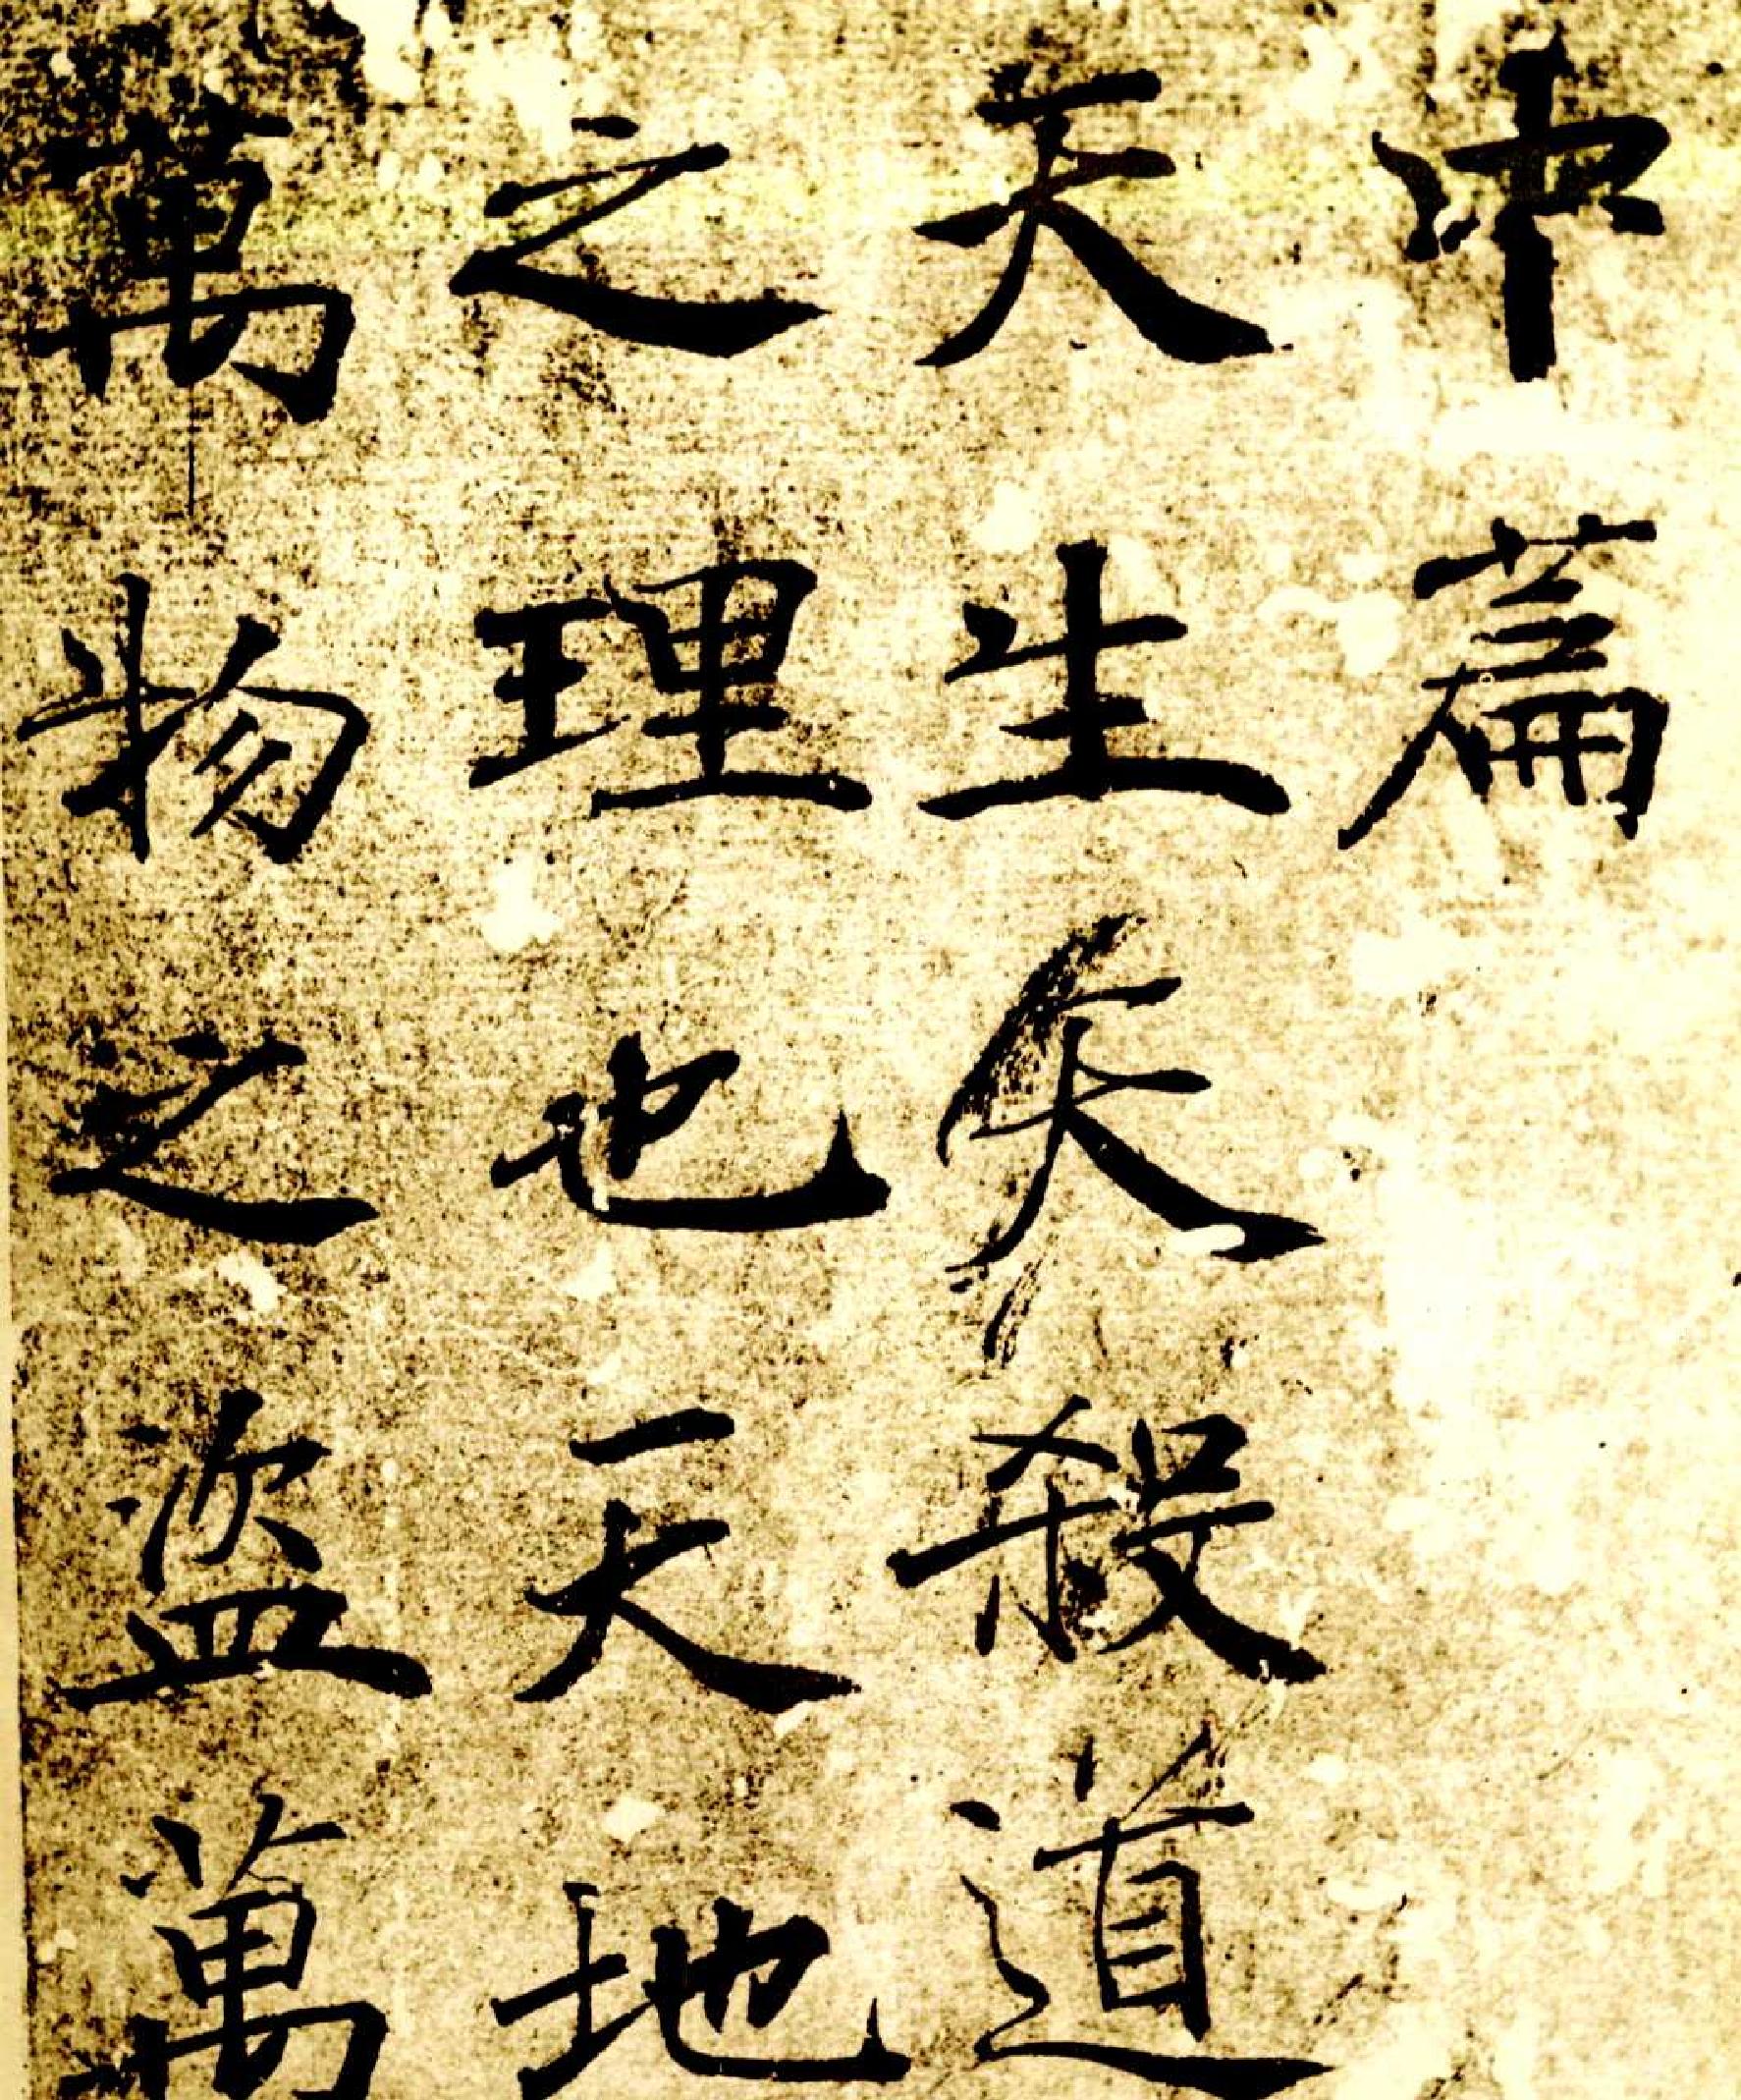 中篇
天生天殺道
之理也天地
萬物之盗萬